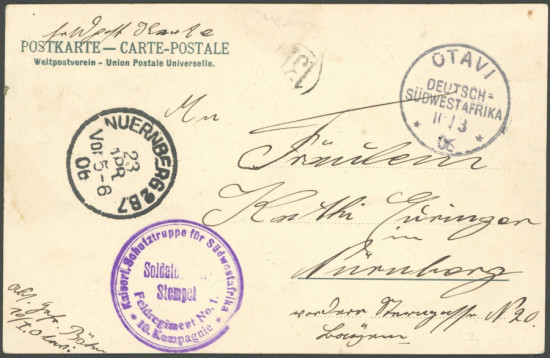 Feldpost Karte
POSTKARTE — CARTE-POSTALE
Weltpostverein - Union Postale Universelle.
OTAVI
DEUTSCH=
SÜDWESTAFRIKA
11/3
06
NUERNBERG 2 B.7
23
APR
Vor 5-6
06
An
Fräulein
Käthi
im
Nürnberg
vordere Sterngasse No 20.
Bayern
Kaiserl. Schutztruppe für Südwestafrika
Soldate
Stempel
Feldregiment No. 1.
* 10. Kompagnie *